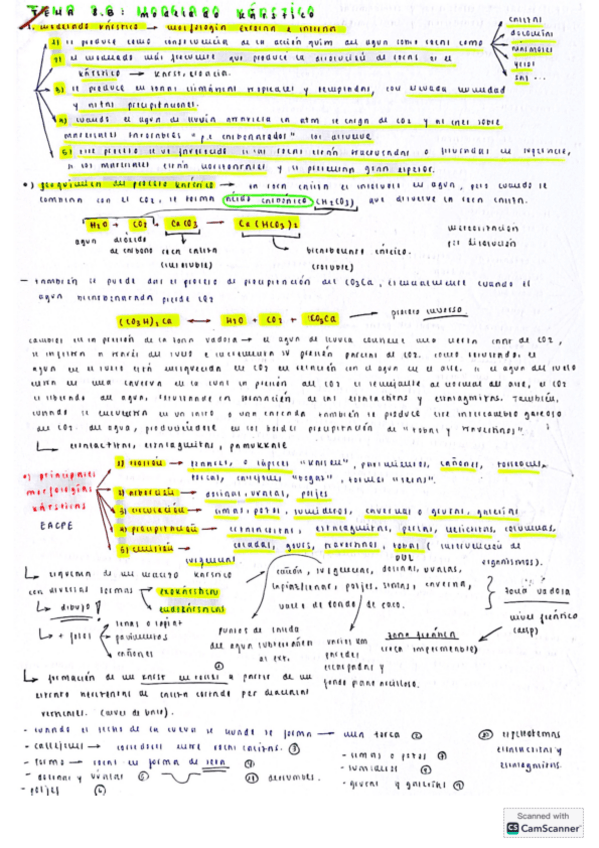 TEMA 2.B: MODELADO KÁRSTICO
1. modelado kárstico → morfología externa e interna
calizas
dolomías
mármoles
yesos
sal ...
se produce como consecuencia de la acción quím del agua sobre rocas como
2) el modelado más frecuente que produce la disolución de rocas es el
kárstico → karst, croacia.
3) se produce en zonas climáticas tropicales y templadas, con elevada humedad
y altas precipitaciones.
4) cuando el agua de lluvia atraviesa la atm se carga de CO2 y al caer sobre
materiales
los disuelve
5) este proceso se ve favorecido si las rocas están fracturadas o
si los materiales están horizontales y si presentan gran espesor.
•) geoquímica del proceso kárstico → la roca caliza es insoluble en agua, pero cuando se
combina con el CO2, se forma ácido carbónico (H2CO3) que disuelve la roca caliza.
H2O + CO2 + CaCO3 → Ca(HCO3)2
meteorización
por disolución
agua dióxido
de carbono roca caliza
(insoluble)
bicarbonato cálcico
(soluble)
- también se puede dar el proceso de precipitación del CO3Ca,
cuando el
agua bicarbonatada pierde CO2
(CO3H)2Ca ↔ H2O + CO2 + CO3Ca → proceso inverso
cambios en la presión de la zona vadosa → el agua de lluvia contiene una cierta cant de CO2,
se infiltra a través del suelo e incrementa su presión parcial de CO2. como resultado, el
agua en el suelo está enriquecida en CO2 en relación con el agua en el aire. si el agua del suelo
entra en una caverna en la cual la presión del CO2 es semejante al normal del aire, el CO2
es liberado del agua, resultando en formación de las estalactitas y estalagmitas. también,
cuando se encuentra en un
o una
también se produce este intercambio gaseoso
del CO2 del agua, produciéndose en los bordes precipitación de "tobas y travertinos".
↳ estalactitas, estalagmitas, pamukkale
•) principales
morfologías
kársticas
EACPE
1) erosión → lenares, o lápiaces "karren", pavimentos, cañones, torcales,
torcas, callejones "bogas", formas "setas".
2) absorción → dolinas, uvalas, poljes
3) circulación → simas, potos, sumideros, cavernas o grutas, galerías
4) precipitación → estalactitas, estalagmitas, perlas, helictitas, columnas,
5) emisión → cascadas, gours, travertinos, tobas (intervención de
organismos).
↳ esquema de un macizo kárstico
con diversas formas
exokársticas
endokársticas
↳ dibujo!
cañón, surgencias, dolinas, uvalas,
lapiaz/lenar, poljes, simas, caverna,
valle de fondo de saco.
zona vadosa
nivel freático
zona freática
(roca impermeable)
↳ + fotos
lenar o lapiaz
pavimentos
cañones
puntos de salida
del agua subterránea
al ext.
valles con
paredes
escarpadas y
fondo plano
↳ formación de un karst en
a partir de un
estrato horizontal de caliza cortado por diaclasas
verticales. (nivel de base).
- cuando el techo de la cueva se hunde se forma → una torca ②
- callejones → corredores entre rocas calizas. ③
- forma → rocas en forma de seta ④
- dolinas y uvalas ⑤
- poljes ⑥
derrumbes.
- simas o potos ⑧
- sumideros ⑨
- grutas y galerías
⑩ espeleotemas
estalactitas y
estalagmitas.
Scanned with
CS CamScanner